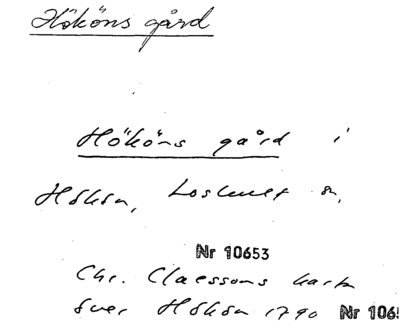 Hököns gård
Hököns gård i
Hökön, Loshult sn,
Nr 10653
Chr. Claessons karta
över Hökön 1790 Nr 1065